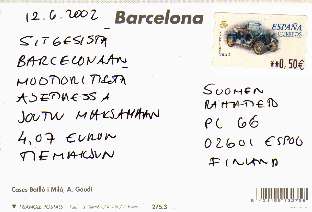 12.6.2002
Barcelona
SITGESISTA
BARCELONAAN
MOOTTORITIETÄ
AJETTAESSA
JOUTUU MAKSAMAAN
4,07 EURON
TIEMAKSUN
ESPAÑA
CORREOS
**0,50€
SUOMEN
RAHATIETO
PL 66
02601 ESPOO
FINLAND
Casas Batlló i Milà, A. Gaudí
275.3